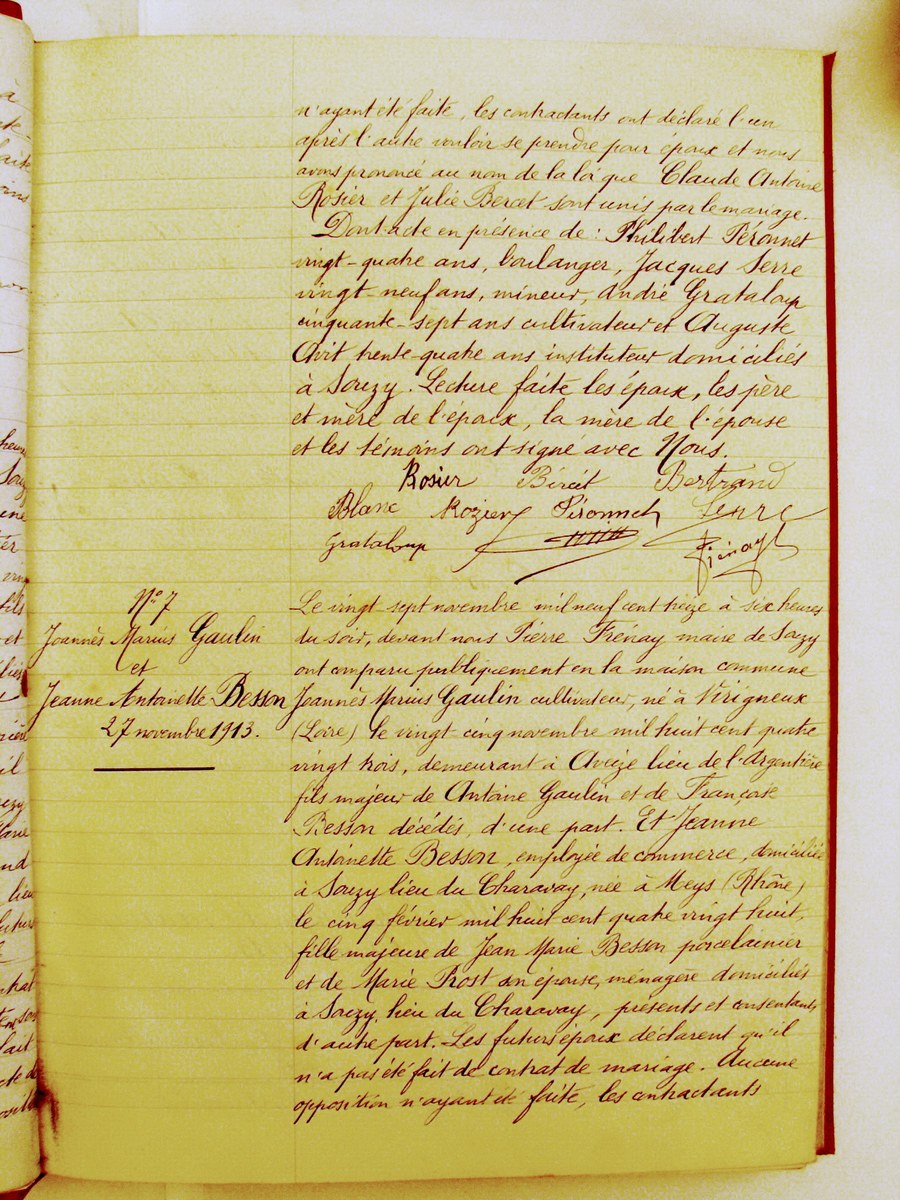 n'ayant été faite, les contractants ont déclaré l'un
après l'autre vouloir se prendre pour époux et nous
avons prononcé au nom de la loi que Claude Antoine
Rosier et Julie Bercet sont unis par le mariage.
Dont acte en présence de : Philibert Péronnet
vingt-quatre ans, boulanger, Jacques Serre
vingt-neuf ans, mineur, André Grataloup
cinquante-sept ans cultivateur et Auguste
Avit trente-quatre ans instituteur domiciliés
à Souzy. Lecture faite les époux, les père
et mère de l'époux, la mère de l'épouse
et les témoins ont signé avec Nous.
Rosier Bercet Bertrand
Blanc Rozier Péronnet Serre
Grataloup Frénay
N° 7
Joannès Marius Gaulin
et
Jeanne Antoinette Besson
27 novembre 1913.
Le vingt-sept novembre mil neuf cent treize à six heures
du soir, devant nous Pierre Frénay maire de Souzy
ont comparu publiquement en la maison commune
Joannès Marius Gaulin cultivateur, né à Virigneux
(Loire) le vingt cinq novembre mil huit cent quatre
vingt trois, demeurant à Aveize lieu de l'Argentière
fils majeur de Antoine Gaulin et de Françoise
Besson décédés, d'une part. Et Jeanne
Antoinette Besson, employée de commerce, domiciliée
à Souzy lieu du Charavay, née à Meys (Rhône)
le cinq février mil huit cent quatre vingt huit,
fille majeure de Jean Marie Besson porcelainier
et de Marie Prost son épouse, ménagère domiciliés
à Souzy, lieu du Charavay, présents et consentants
d'autre part. Les futurs époux déclarent qu'il
n'a pas été fait de contrat de mariage. Aucune
opposition n'ayant été faite, les contractants